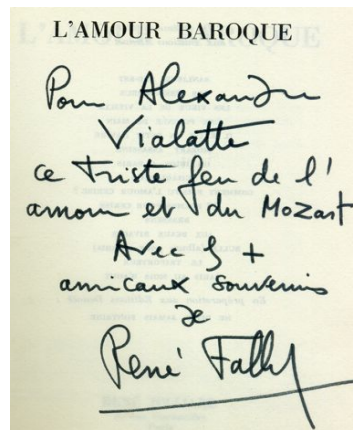 L'AMOUR BAROQUE
Pour Alexandre
Vialatte
ce triste feu de l'
amour et du Mozart
Avec les +
amicaux souvenirs
de
René Fallet